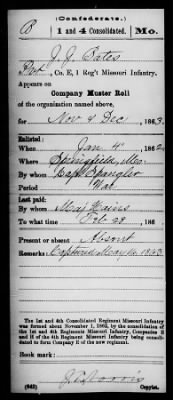 (Confederate.)
B 1 and 4 Consolidated. Mo.
J. J. Bates
Pvt, Co. E, 1 Reg't Missouri Infantry.
Appears on
Company Muster Roll
of the organization named above,
for Nov & Dec, 1863.
Enlisted:
When Jan 4, 1862
Where Springfield, Mo.
By whom Capt Spangler
Period War
Last paid:
By whom Maj
To what time Feb 28, 186
Present or absent Absent
Remarks: Captured May 16, 1863
The 1st and 4th Consolidated Regiment Missouri Infantry
was formed about November 1, 1862, by the consolidation
of the 1st and 4th Regiments Missouri Infantry, Companies E
and H of the 4th Regiment Missouri Infantry being consolidated
to form Company E of the new regiment.
Book mark:
(642) Copyist.